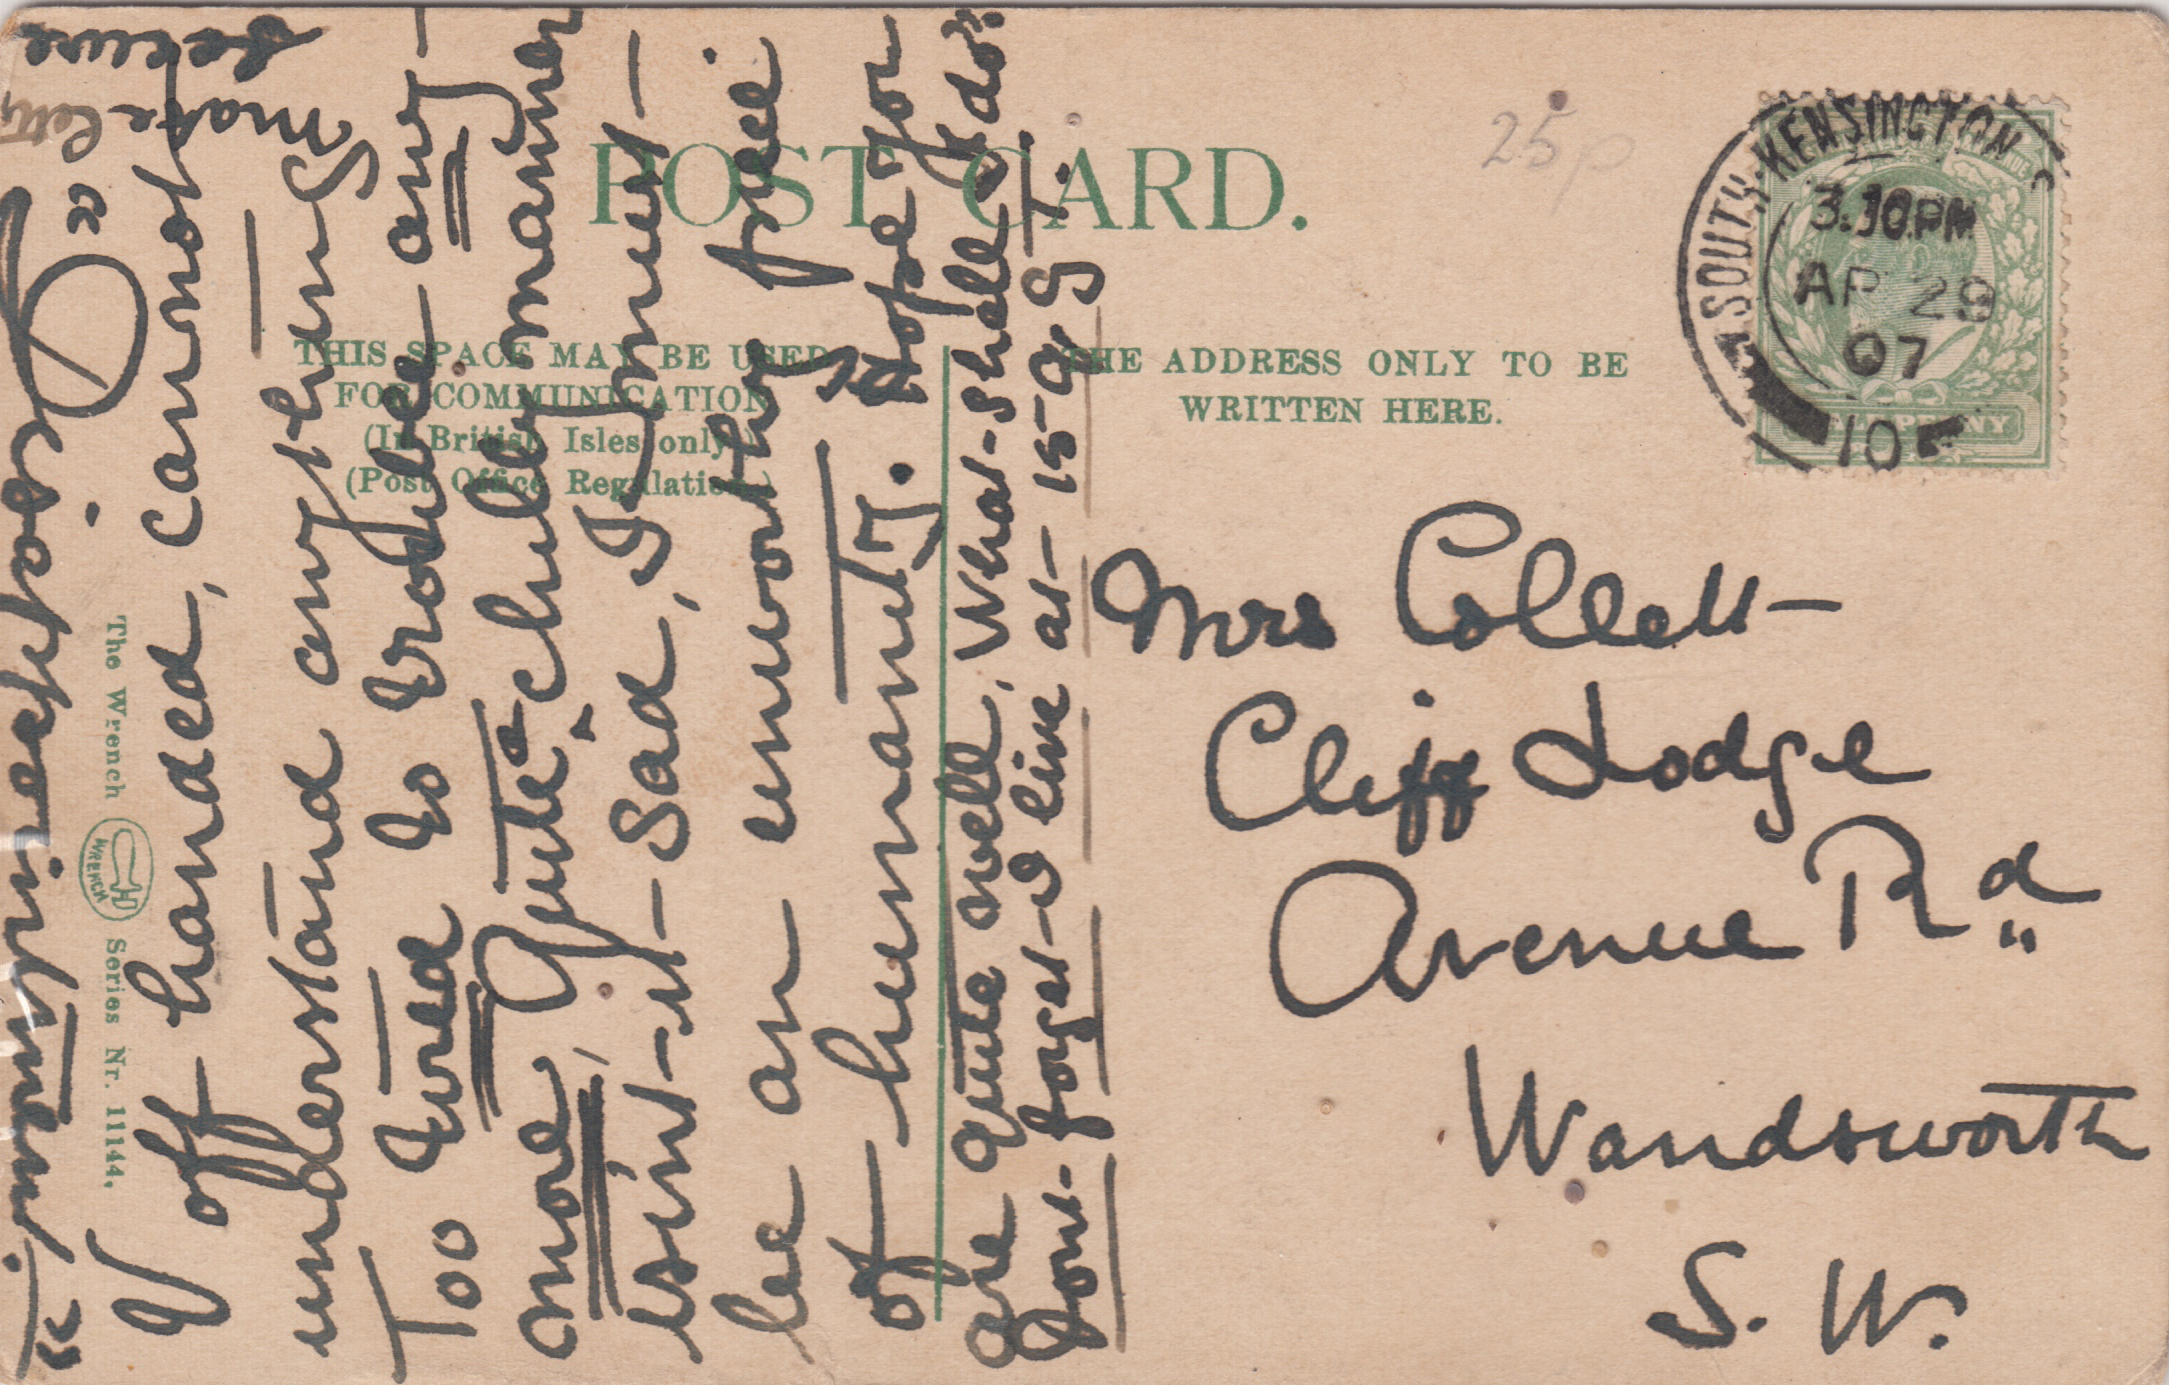 POST CARD.
THIS SPACE MAY BE USED
FOR COMMUNICATION
(In British Isles only.)
(Post Office Regulations.)
THE ADDRESS ONLY TO BE
WRITTEN HERE.
25p
SOUTH KENSINGTON
3.30 PM
AP 29
07
10
HALFPENNY
Mrs Collett
Cliff Lodge
Avenue Rd
Wandsworth
S. W.
The Wrench
WRENCH
Series Nr. 11144.
off handed, cannot
understand anything
Too tired to trouble any
more, Quite childey manner
isint-it-sad, I must
be an unworthy piece
of humanity. Hope you
are quite well, What-shall I do?
Dont-forget-I live at-15-Q. G. T.
make
secure